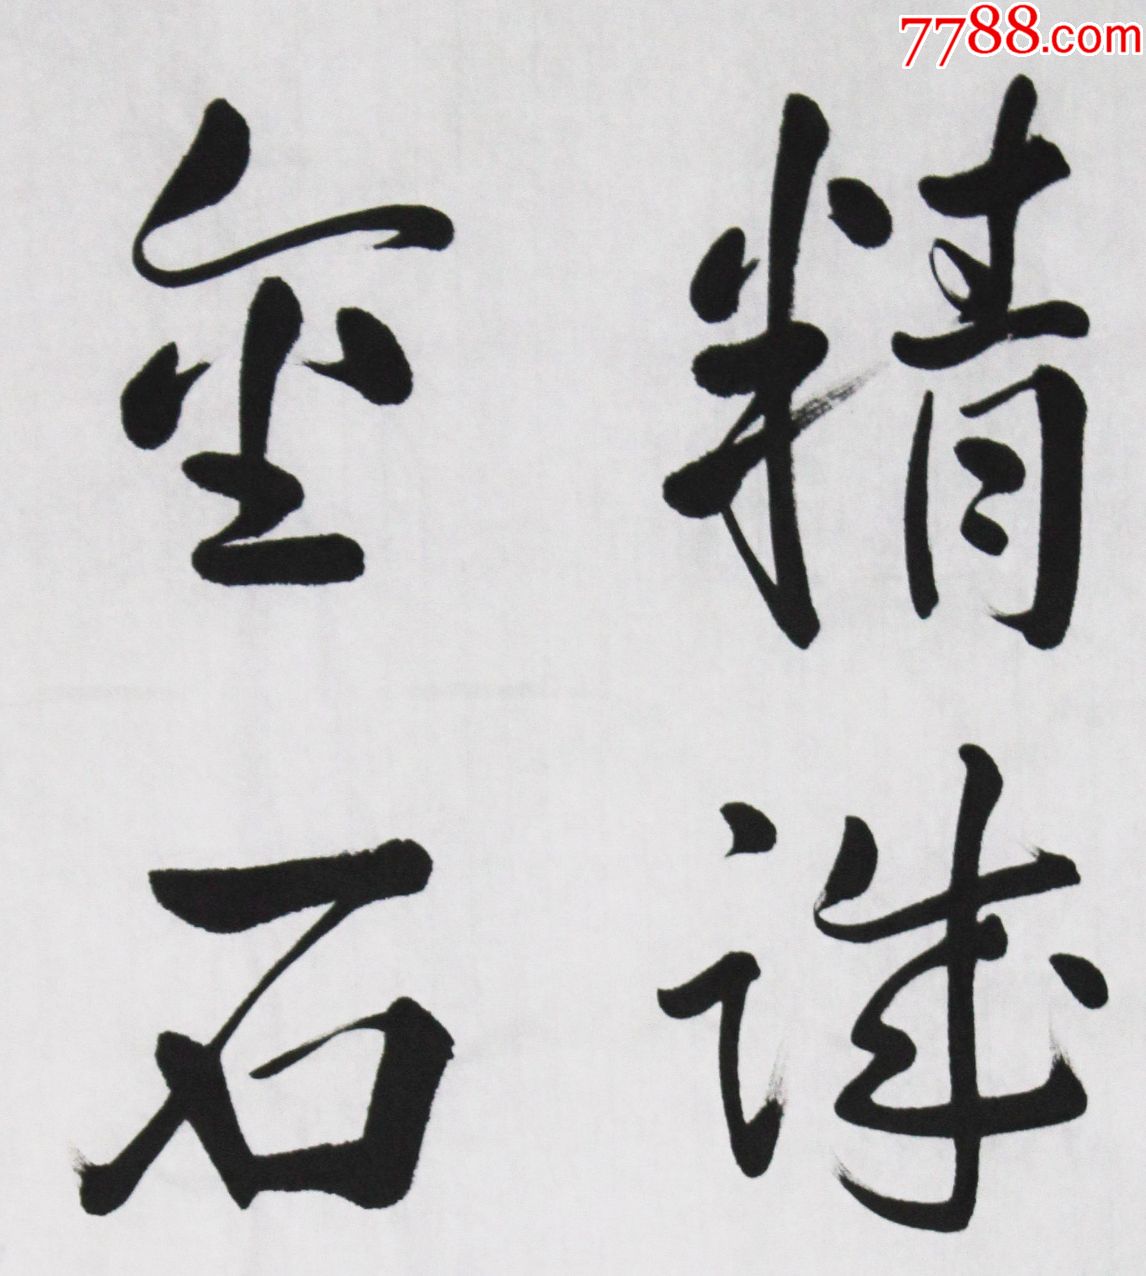 7788.com
精诚
金石